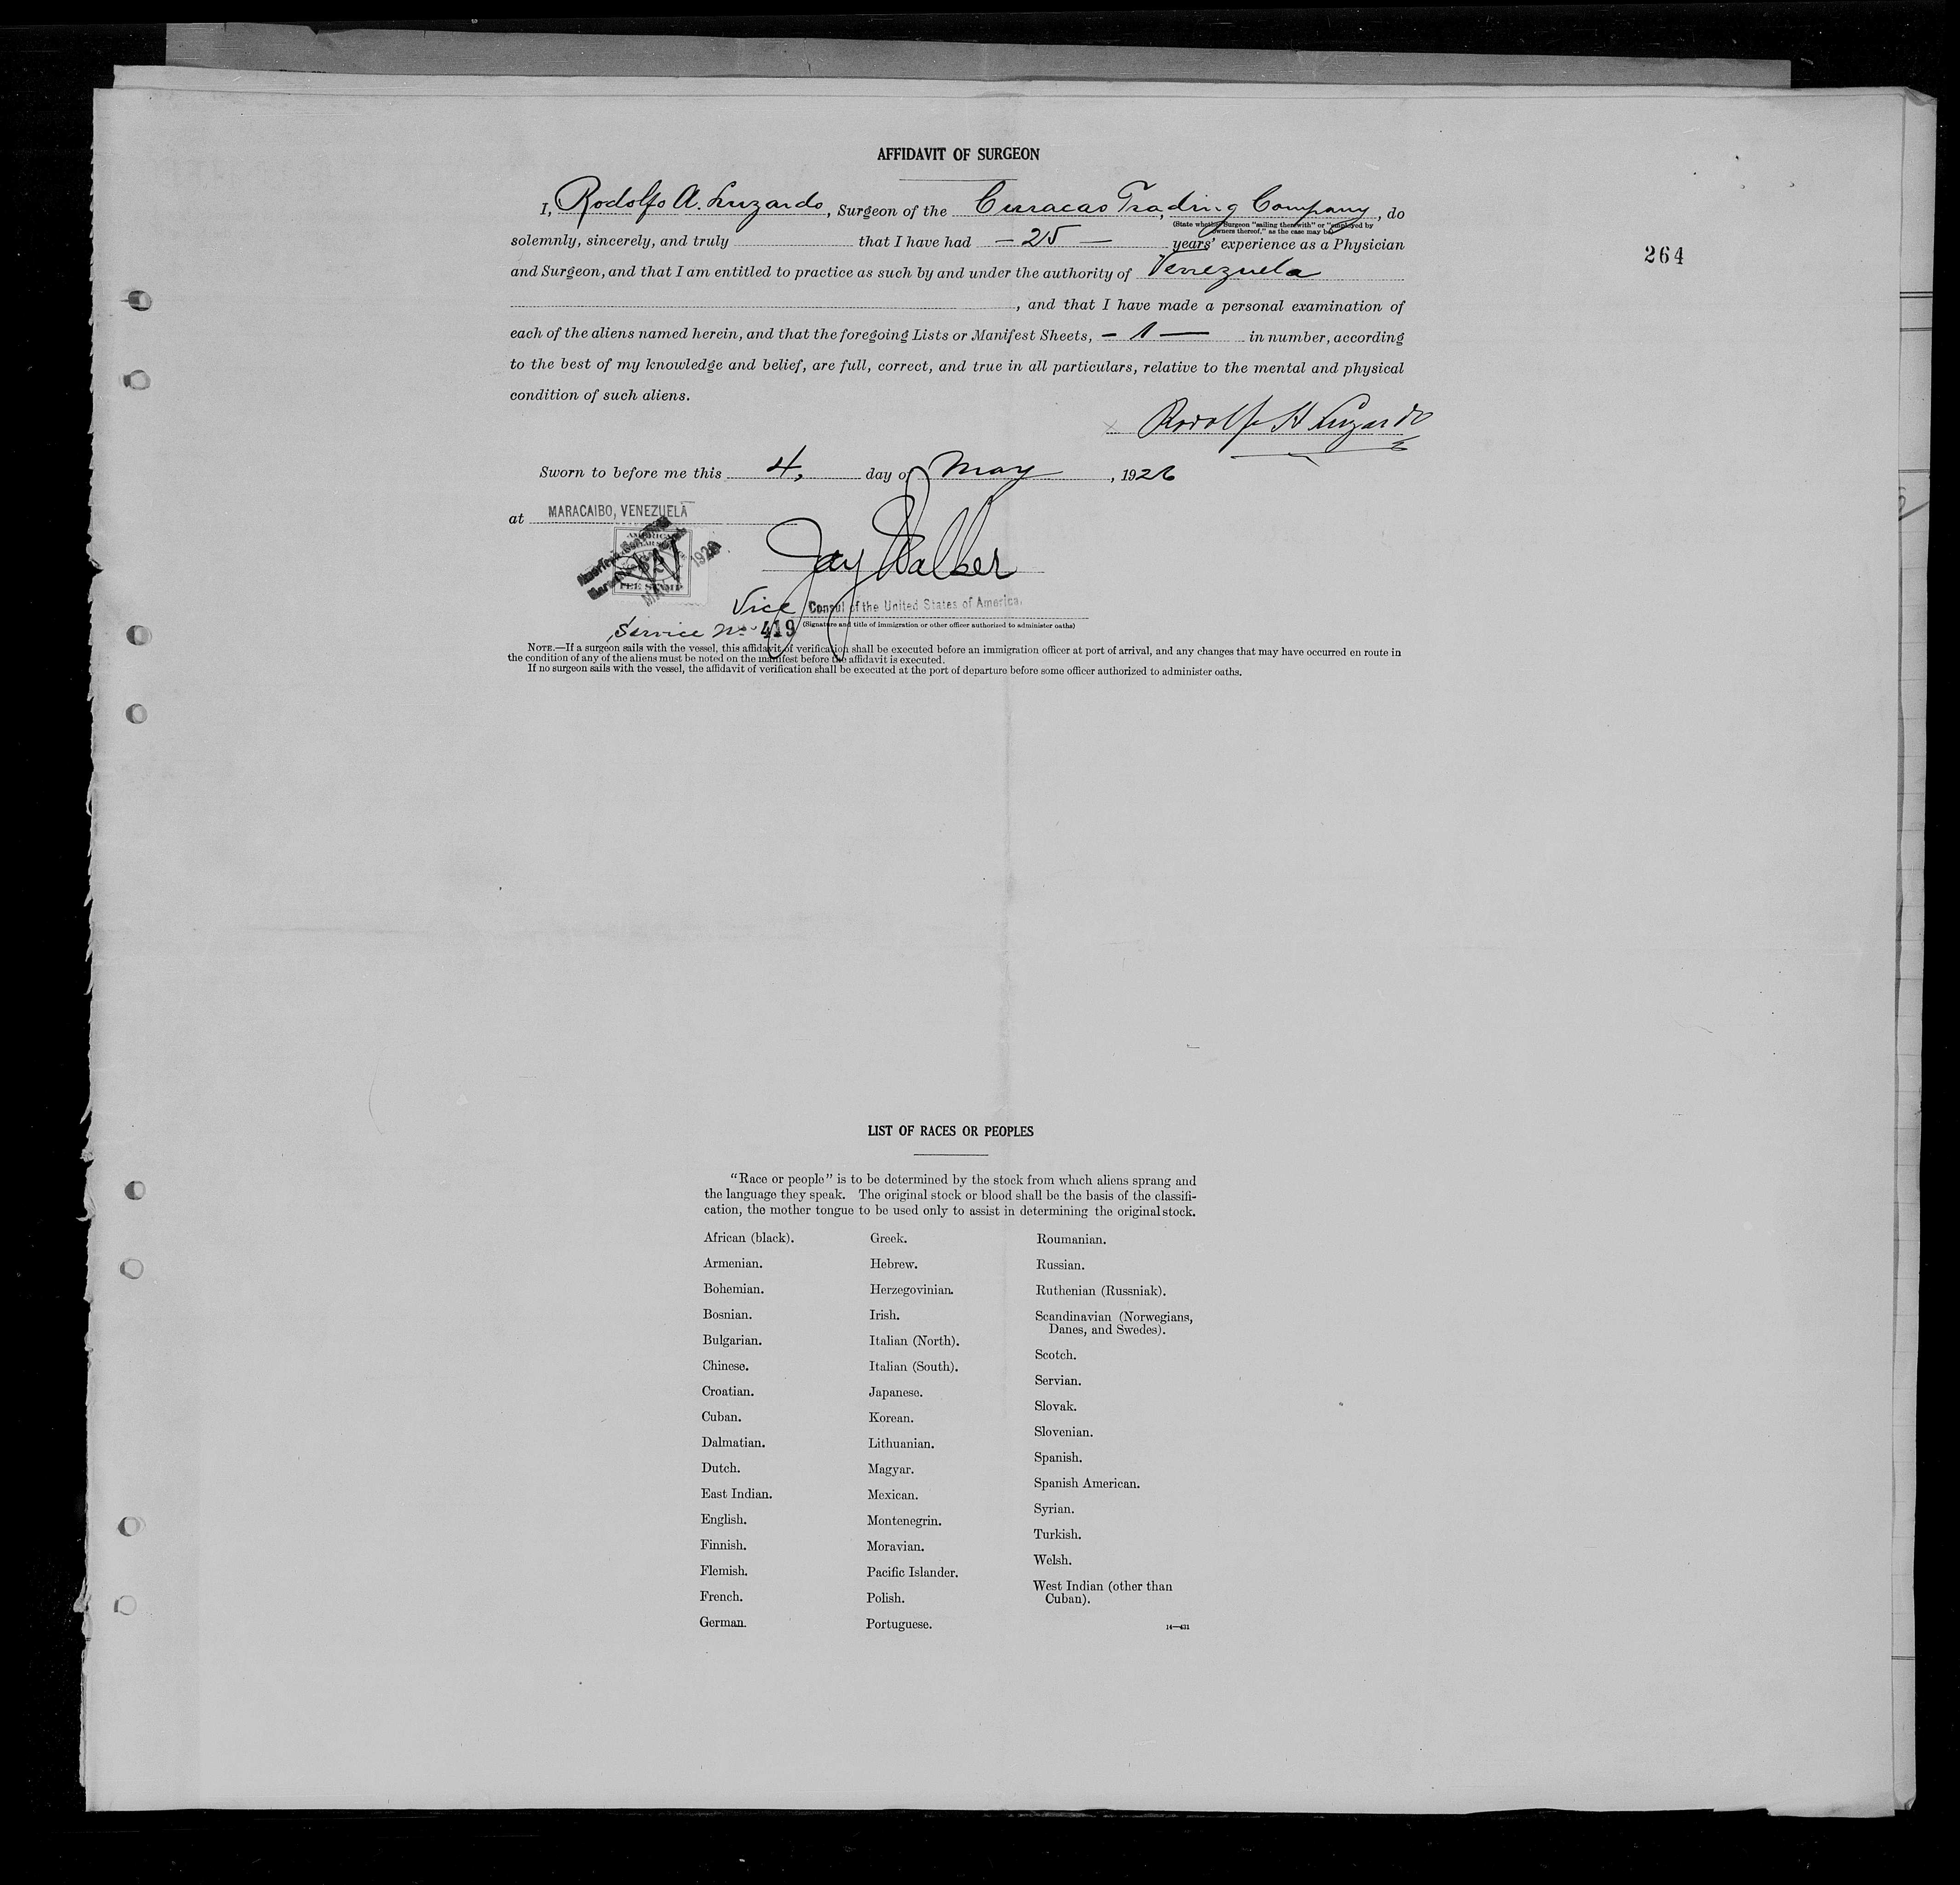 AFFIDAVIT OF SURGEON
I, Rodolfo A. Luzardo, Surgeon of the Curacao Trading Company, do
(State whether Surgeon "sailing therewith" or "employed by
owners thereof," as the case may be)
solemnly, sincerely, and truly that I have had — 25 — years' experience as a Physician
and Surgeon, and that I am entitled to practice as such by and under the authority of Venezuela
, and that I have made a personal examination of
264
each of the aliens named herein, and that the foregoing Lists or Manifest Sheets, — 1 — in number, according
to the best of my knowledge and belief, are full, correct, and true in all particulars, relative to the mental and physical
condition of such aliens.
Rodolfo A Luzardo
Sworn to before me this 4, day of May, 1926
at MARACAIBO, VENEZUELA
Jay Walker
Vice Consul of the United States of America.
Service No 419 (Signature and title of immigration or other officer authorized to administer oaths)
NOTE.—If a surgeon sails with the vessel, this affidavit of verification shall be executed before an immigration officer at port of arrival, and any changes that may have occurred en route in
the condition of any of the aliens must be noted on the manifest before the affidavit is executed.
If no surgeon sails with the vessel, the affidavit of verification shall be executed at the port of departure before some officer authorized to administer oaths.
LIST OF RACES OR PEOPLES
"Race or people" is to be determined by the stock from which aliens sprang and
the language they speak. The original stock or blood shall be the basis of the classifi-
cation, the mother tongue to be used only to assist in determining the original stock.
African (black).
Armenian.
Bohemian.
Bosnian.
Bulgarian.
Chinese.
Croatian.
Cuban.
Dalmatian.
Dutch.
East Indian.
English.
Finnish.
Flemish.
French.
German.
Greek.
Hebrew.
Herzegovinian.
Irish.
Italian (North).
Italian (South).
Japanese.
Korean.
Lithuanian.
Magyar.
Mexican.
Montenegrin.
Moravian.
Pacific Islander.
Polish.
Portuguese.
Roumanian.
Russian.
Ruthenian (Russniak).
Scandinavian (Norwegians,
Danes, and Swedes).
Scotch.
Servian.
Slovak.
Slovenian.
Spanish.
Spanish American.
Syrian.
Turkish.
Welsh.
West Indian (other than
Cuban).
14—431